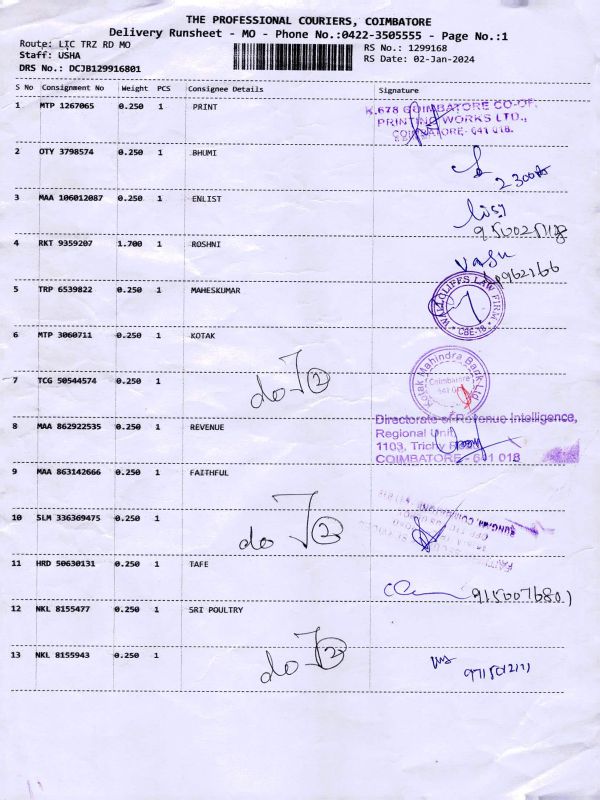 THE PROFESSIONAL COURIERS, COIMBATORE
Delivery Runsheet - MO - Phone No.:0422-3505555 - Page No.:1
Route: LIC TRZ RD MO
RS No.: 1299168
Staff: USHA
RS Date: 02-Jan-2024
DRS No.: DCJB129916801
S No Consignment No Weight PCS Consignee Details Signature
1 MTP 1267065 0.250 1 PRINT
K.678 COIMBATORE CO-OP.
PRINTING WORKS LTD.,
COIMBATORE- 641 018.
2 OTY 3798574 0.250 1 BHUMI
3 MAA 106012087 0.250 1 ENLIST
4 RKT 9359207 1.700 1 ROSHNI
Vasu
5 TRP 6539822 0.250 1 MAHESKUMAR
WALLCLIFFS LAW FIRM
CBE-18
6 MTP 3060711 0.250 1 KOTAK
Kotak Mahindra Bank Ltd
Coimbatore
7 TCG 50544574 0.250 1
do 2
8 MAA 862922535 0.250 1 REVENUE
Directorate of Revenue Intelligence,
Regional Unit,
1103, Trichy Road,
COIMBATORE - 641 018
9 MAA 863142666 0.250 1 FAITHFUL
10 SLM 336369475 0.250 1
do 2
11 HRD 50630131 0.250 1 TAFE
9150076801
12 NKL 8155477 0.250 1 SRI POULTRY
13 NKL 8155943 0.250 1
do 2